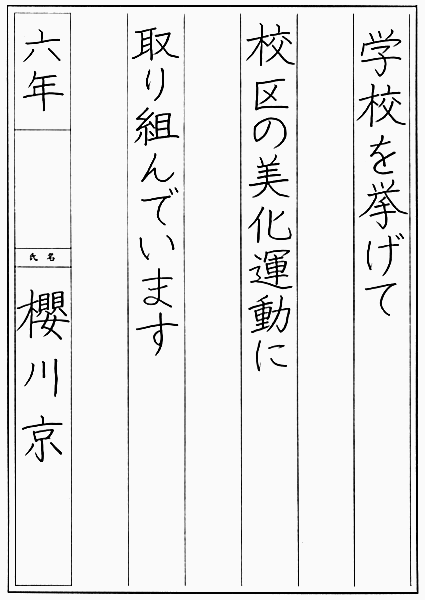 学校を挙げて
校区の美化運動に
取り組んでいます
六年
氏名
櫻川京